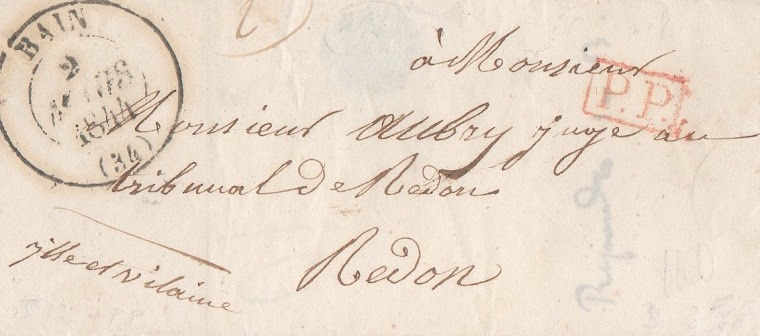 BAIN
2
MARS
1844
(34)
à Monsieur
P.P.
Monsieur Aubry juge au
tribunal de Redon
Redon
ille et vilaine